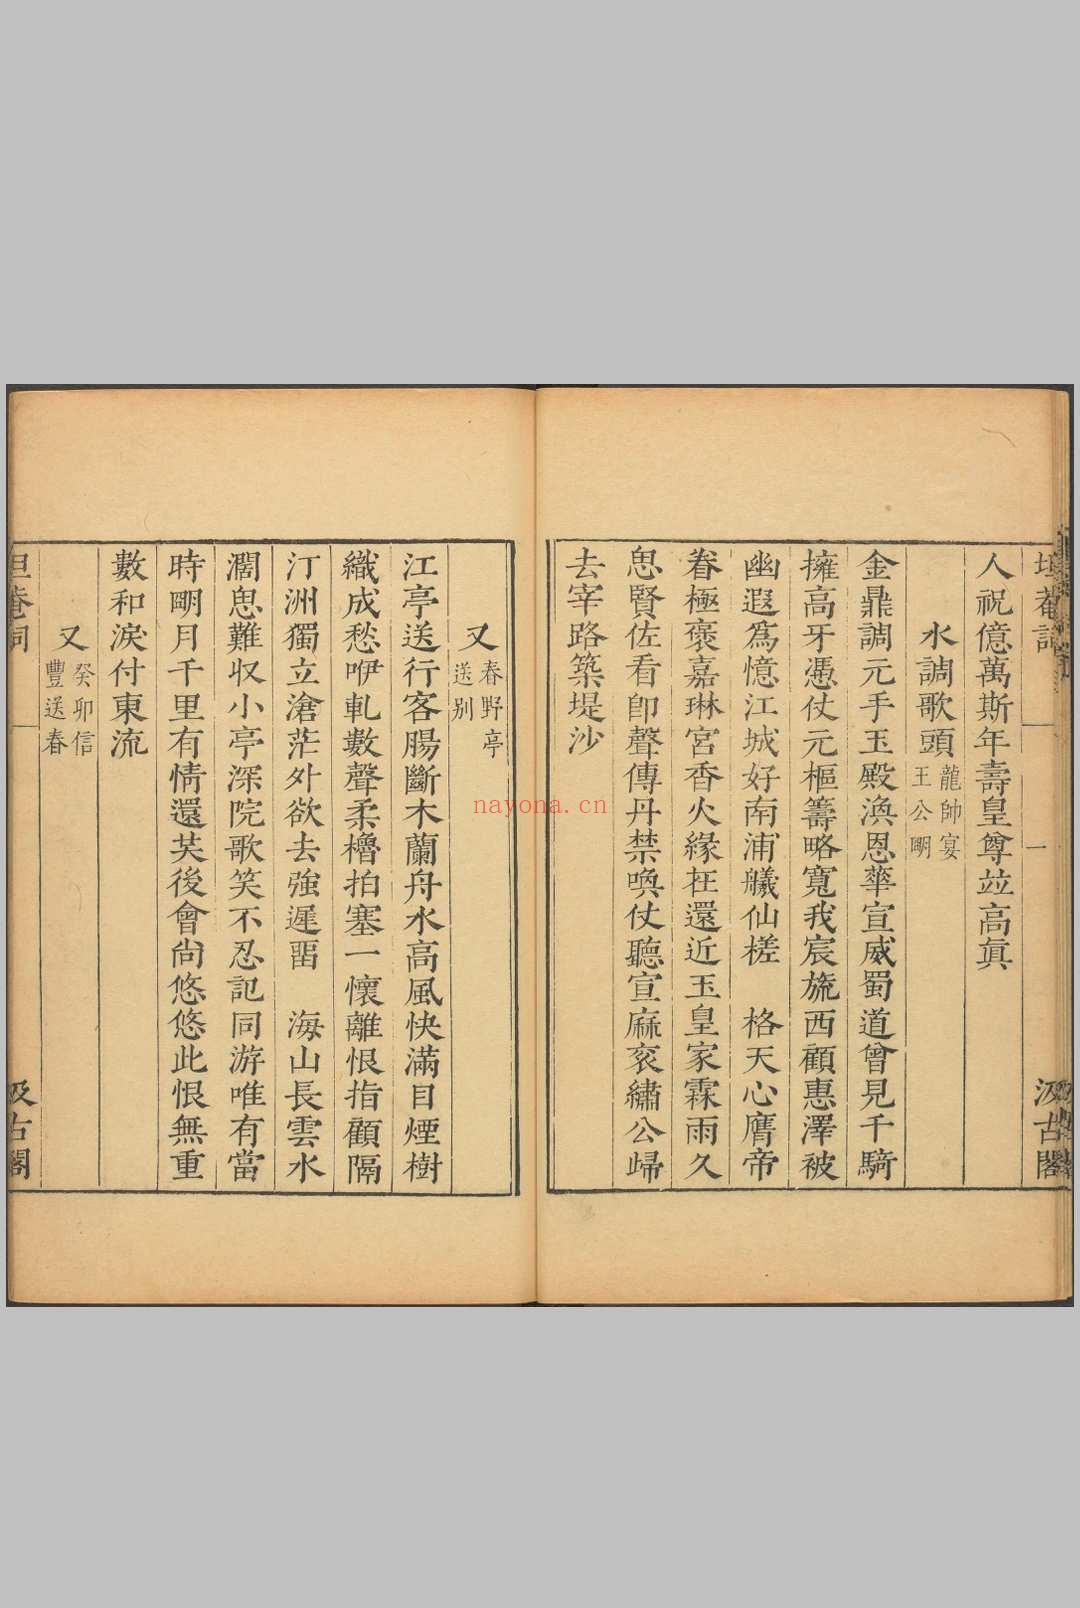 坦菴詞
一
汲古閣
人祝億萬斯年壽皇尊竝高眞
水調歌頭 龍帥宴
王公明
金鼎調元手玉殿渙恩華宣威蜀道曾見千騎
擁高牙憑仗元樞籌略寬我宸旒西顧惠澤被
幽遐爲憶江城好南浦艤仙槎　格天心膺帝
眷極褒嘉琳宮香火緣在還近玉皇家霖雨久
思賢佐看卽聲傳丹禁喚仗聽宣麻衮繡公歸
去宰路築堤沙
又 春野亭
送別
江亭送行客腸斷木蘭舟水高風快滿目煙樹
織成愁咿軋數聲柔櫓拍塞一懷離恨指顧隔
汀洲獨立滄茫外欲去強遲畱　海山長雲水
濶思難収小亭深院歌笑不忍記同游唯有當
時明月千里有情還共後會尙悠悠此恨無重
數和淚付東流
又 癸卯信
豐送春
坦菴詞
汲古閣
nayona.cn